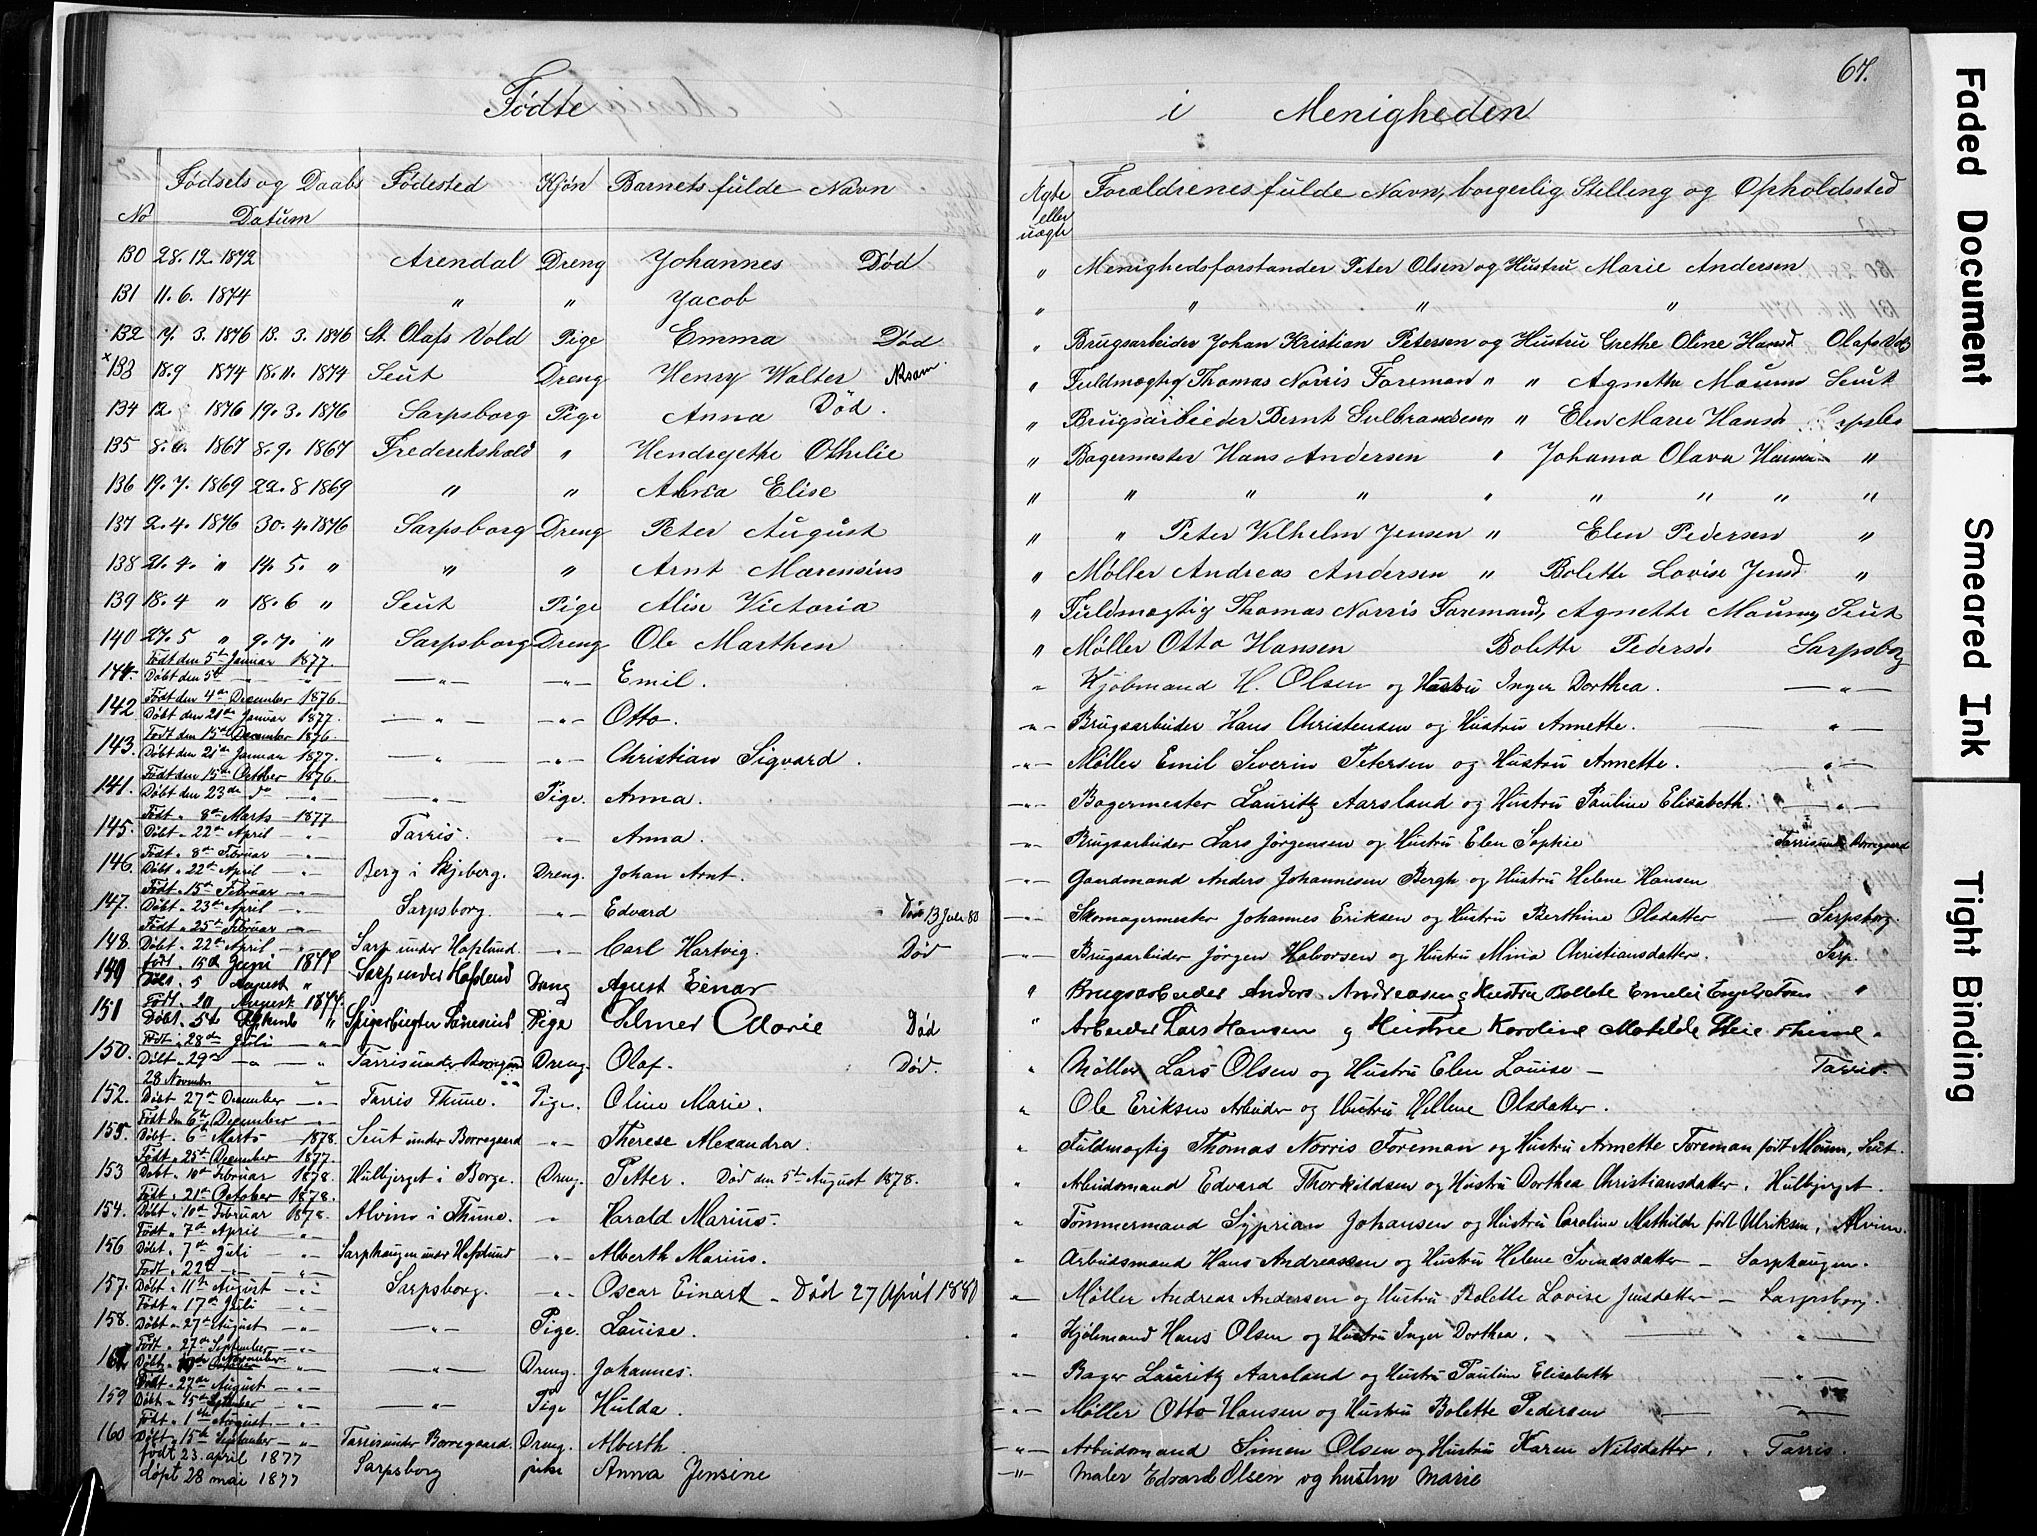 67.
Fødte i Menigheden
No Fødsels og Daabs Datum Fødested Kjøn Barnets fulde Navn Ægte eller uægte Forældrenes fulde Navn, borgerlig Stilling og Opholdssted
130 28.12.1872 Arendal Dreng Johannes Død " Menighedsforstander Peter Olsen og Hustru Marie Andersen
131 11.6.1874 " " Jacob " " " "
132 17.3.1876 13.3.1876 St. Olafs Vold Pige Emma Død " Brugsarbeider Johan Kristian Petersen og Hustru Grethe Oline Hansd Olafs Vold
× 133 18.9 1874 18.11.1874 Seut Dreng Henry Walter " Fuldmægtig Thomas Norris Foreman " " Agnethe Moum Seut
134 12. 1876 19.3.1876 Sarpsborg Pige Anna Død. " Brugsarbeider Bernt Gulbrandsen " " Elen Marie Hansd
135 8.6.1867 8.9.1867 Frederikshald " Hendrejette Othilie " Bagermester Hans Andersen " Johanna Olava Hansen "
136 19.7.1869 22.8 1869 " " Alvia Elise " " " " " " " " "
137 2.4.1876 30.4.1876 Sarpsborg Dreng Peter August " " Peter Vilhelm Jensen " Elen Pedersen "
138 21.4. " 14.5. " " " Arnt Marensius " Møller Andreas Andersen " Bolette Lovise Jensd "
139 18.4 " 18.6 " Seut Pige Alise Victoria " Fuldmægtig Thomas Norris Foremand, Agnette Moum Seut
140 27.5 " 9.7. " Sarpsborg Dreng Ole Marthen " Møller Otto Hansen Bolette Pedersd Sarpsborg
144. Født den 5te Januar 1877.
Døbt den 5te — " — " — " — — " — Emil. " Kjøbmand H. Olsen og Hustru Inger Dorthea. — " —
142 Født den 4de December 1876.
Døbt den 21de Januar 1877. — " — — " — Otto. — " — Brugsarbeider Hans Christensen og Hustru Annette. — "
143. Født den 15de December 1876.
Døbt den 21de Januar 1877. — " — — " — Christian Sigvard. — " — Møller Emil Severin Petersen og Hustru Annette. — " —
141. Født den 15de October 1876.
Døbt den 23de do — " — — " — Pige. Anna. — " — Bagermester Lauritz Aarsland og Hustru Pauline Elisabeth. — " —
145. Født " 8de Marts — 1877
Døbt " 22de April — " Tarris. — " — Anna. — " — Brugsarbeider Lars Jørgensen og Hustru Elen Sophie Tarris under Borregaard
146. Født " 8de Februar — " —
Døbt " 22de April — " Berg i Skjeberg. Dreng. Johan Arnt. — " — Gaardmand Anders Johannesen Bergh og Hustru Helene Hansen
147. Født " 15de Februar — " —
Døbt " 23de April — " Sarpsborg. — " — Edvard Død 13 Juli 80 — " — Skomagermester Johannes Eriksen og Hustru Berthine Olsdatter — Sarpsborg.
148. Født " 25de Februar — " —
Døbt " 22de April — " Sarp under Haflund. — " — Carl Hartvig. Død — " — Brugsarbeider Jørgen Halvorsen og Hustru Mina Christiansdatter. Sarp.
149 født. 15de Juni 1877
5 August " Sarp under Hafslund Dreng Agust Einar " Brugsarbeider Anders Andreasen og Hustru Bollete Emelie "
151 Født. 20 August 1877.
Døbt. 5te " Pige Selmer Marie Død " Arbeider Lars Hansen og Hustrue Karoline Matilde
150. Født " 28de Juli — " —
Døbt " 29de — " — " Tarris under Borregaard Dreng. Olaf. Død. " Møller Lars Olsen og Hustru Elen Louise — Tarris.
152. 28 November "
Døbt " 27de December — " — Tarris Thune. Pige. Oline Marie. " Ole Eriksen Arbeider og Hustru Hellene Olsdatter.
155. Født den 6te December — " —
Døbt. 6te Marts — 1878. Seut under Borregaard — " — Therese Alexandra. " Fuldmægtig Thomas Norris Foreman og Hustru Annette Foreman født Moum, Seut.
153 Født. 25de December 1877.
Døbt " 10de Februar 1878. Hulbjerget i Borge. Dreng. Petter. Død den 5te August 1878. " Arbeidsmand Edvard Thorkildsen og Hustru Dorthea Christiansdatter. Hulbjerget.
154. Født. 21de October 1878.
Døbt " 10de Februar 1878. Alvim i Thune. " Harald Marius. " Tømmermand Syprian Johansen og Hustru Caroline Mathilde født Ulriksen, Alvim.
156 Født " 7de April — " —
Døbt. 7de Juli — " Sarphaugen under Hafslund — " — Alberth Marius. " Arbeidsmand Hans Andreassen og Hustru Helene Svendsdatter — Sarphaugen.
157. Født " 22de — " —
Døbt " 11te August — " — Sarpsborg. — " — Oscar Einart — Død 27 April 1880 " Møller Andreas Andersen og Hustru Bolette Lovise Jensdatter — Sarpsborg.
158. Født " 17de Juli — " —
Døbt " 27de August — " — — " — Pige. Louise. " Kjøbmand Hans Olsen og Hustru Inger Dorthea. "
Født " 27de September — " —
Døbt — " — — " — Dreng. Johannes. — " — Bager Lauritz Aarsland og Hustru Pauline Elisabeth — " —
159 Født " 27de August — " —
Døbt " 15de September — " — — " — Pige Hulda. — " — Møller Otto Hansen og Hustru Bolette Pedersen — " —
160 Født " 1ste August — " —
Døbt " 15de September — " — Tarris under Borregaard. Dreng. Alberth. — " — Arbeidsmand Simen Olsen og Hustru Karen Nilsdatter. Tarris.
født 23. april 1877
døpt 28 mai 1877 Sarpsborg pike Anna Jensine — " — Maler Edvard Olsen og hustru Marie
Faded Document
Smeared Ink
Tight Binding